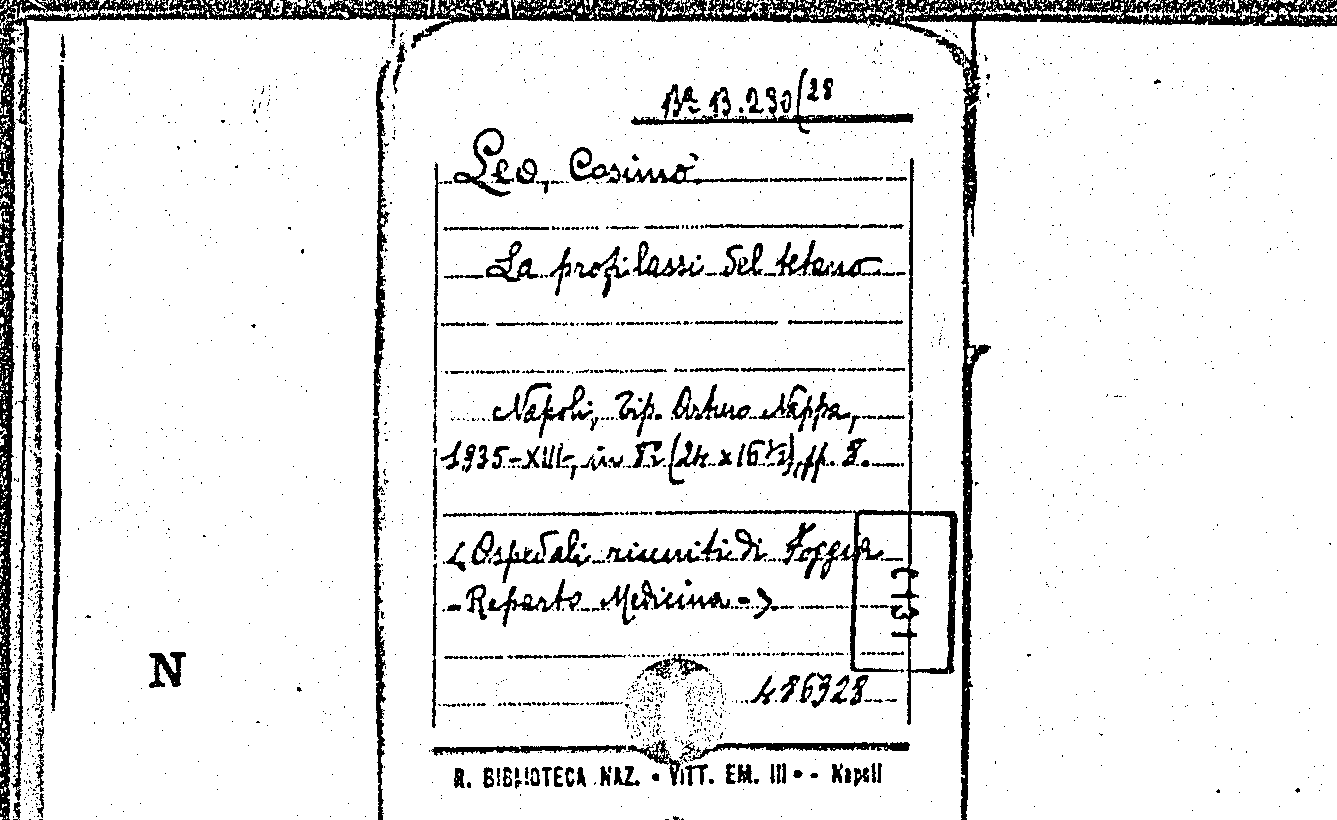 Ba B.230(28
Leo, Cosimo.
La profilassi del tetano
Napoli, Tip. Arturo Nappa,
1935-XIII-, in 8º (24 x 16½), pp. 8.
(Ospedali riuniti di Foggia
-Reparto Medicina-).
486328
N
R. BIBLIOTECA NAZ. • VITT. EM. III • - Napoli